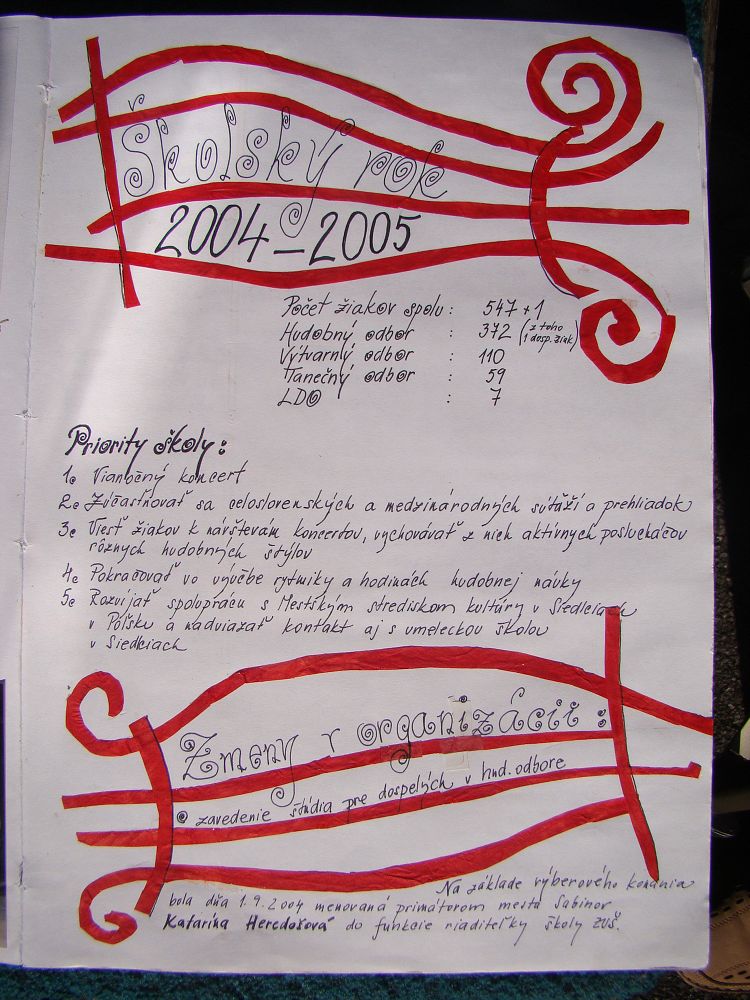 Školský rok
2004-2005
Počet žiakov spolu: 547+1
Hudobný odbor : 372 (z toho 1 dosp. žiak)
Výtvarný odbor : 110
Tanečný odbor : 59
LDO : 7
Priority školy:
1. Vianočný koncert
2. Zúčastňovať sa celoslovenských a medzinárodných súťaží a prehliadok
3. Viesť žiakov k návštevám koncertov, vychovávať z nich aktívnych poslucháčov
rôznych hudobných štýlov
4. Pokračovať vo výučbe rytmiky a hodinách hudobnej náuky
5. Rozvíjať spoluprácu s Mestským strediskom kultúry v Siedlciach
v Poľsku a nadviazať kontakt aj s umeleckou školou
v Siedlciach
Zmeny v organizácii:
zavedenie štúdia pre dospelých v hud. odbore
Na základe výberového konania
bola dňa 1.9.2004 menovaná primátorom mesta Sabinov
Katarína Heredošová do funkcie riaditeľky školy ZUŠ.